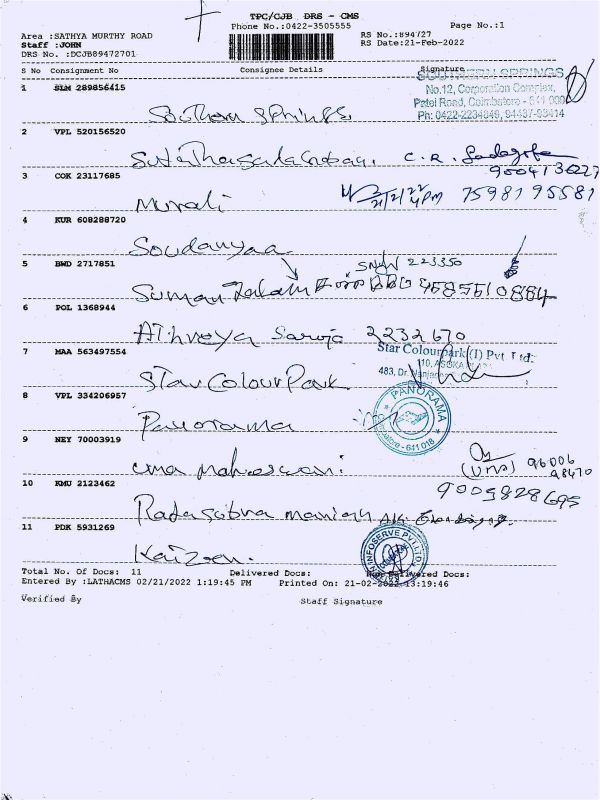 TPC/CJB DRS - CMS
Phone No.:0422-3505555
Page No.:1
Area :SATHYA MURTHY ROAD
RS No.:894727
Staff :JOHN
RS Date:21-Feb-2022
DRS No. :DCJB89472701
S No Consignment No Consignee Details Signature
SOUTHERN SPRINGS
No.12, Corporation Complex,
Patel Road, Coimbatore - 641 009
Ph: 0422-2234046, 94437-93414
1 SLM 289856415
Southern Springs
2 VPL 520156520
C. R.
9004136227
3 COK 23117685
Murali
21/2/22 4PM 7598195581
4 KUR 608288720
Soudanyaa
5 BWD 2717851
223350
Suman
6 POL 1368944
Athreya Saroja 2232670
7 MAA 563497554
Star Colourpark (I) Pvt. Ltd.
110, ASOKA
483, Dr.
Star Colour Park
8 VPL 334206957
PANORAMA
641 018
Panorama
9 NEY 70003919
Uma Maheswari
(UMA) 96006
98470
10 KMU 2123462
9005828695
11 PDK 5931269
INFOSERVE PVT LTD
Kaizen
Total No. Of Docs: 11 Delivered Docs: Non Delivered Docs:
Entered By :LATHACMS 02/21/2022 1:19:45 PM Printed On: 21-02-2022 13:19:46
Verified By Staff Signature